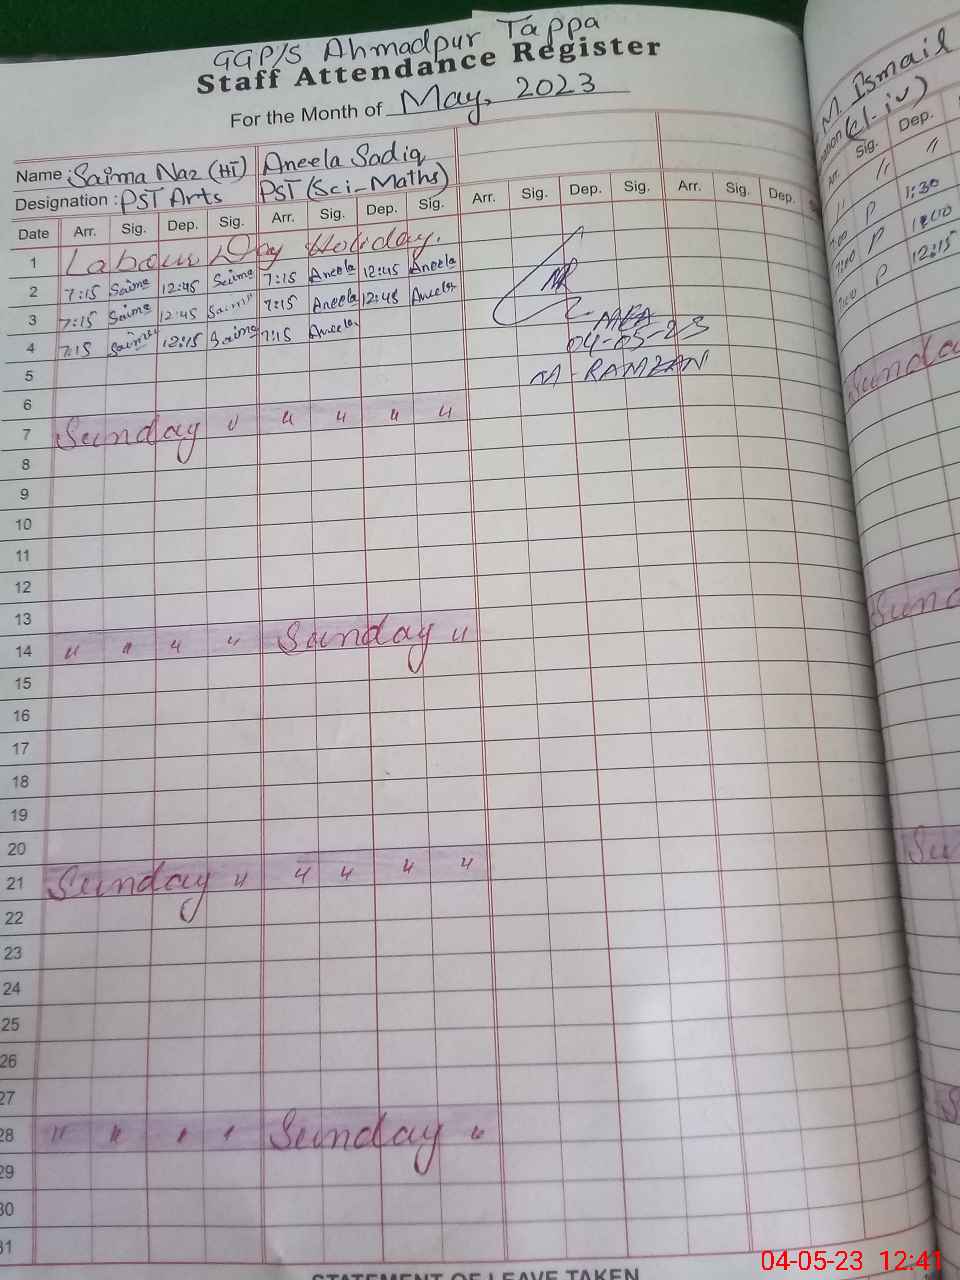 GGP/S Ahmadpur Tappa
Staff Attendance Register
For the Month of May, 2023
Name : Saima Naz (HT) Aneela Sadiq
Designation : PST Arts PST (Sci-Maths)
Date Arr. Sig. Dep. Sig. Arr. Sig. Dep. Sig. Arr. Sig. Dep. Sig. Arr. Sig. Dep.
1 Labour Day Holiday.
2 7:15 Saima 12:45 Saima 7:15 Aneela 12:45 Aneela
3 7:15 Saima 12:45 Saima 7:15 Aneela 12:45 Aneela
4 7:15 Saima 12:15 Saima 7:15 Aneela
MEA
04-05-23
M-RAMZAN
5
6
7 Sunday " " " " "
8
9
10
11
12
13
14 " " " " Sunday "
15
16
17
18
19
20
21 Sunday " " " " "
22
23
24
25
26
27
28 " " " " Sunday "
29
30
31
STATEMENT OF LEAVE TAKEN
M. Ismail
(cl-iv)
Arr. Sig. Dep.
" " "
7:00 P 1:30
7:00 P
P 12:15
Sunda
Sund
Su
S
04-05-23 12:41